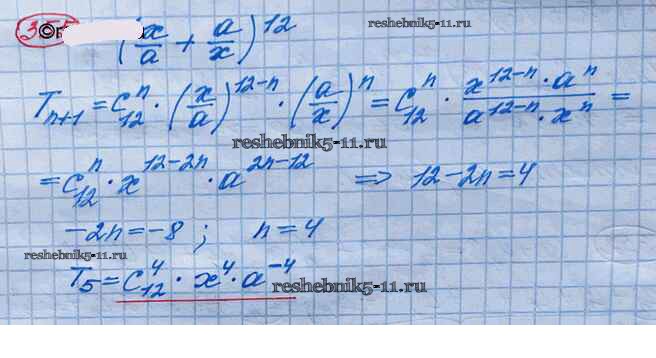 (x/a + a/x)^12
reshebnik5-11.ru
T_{n+1} = C_{12}^n · (x/a)^{12-n} · (a/x)^n = C_{12}^n · (x^{12-n} · a^n)/(a^{12-n} · x^n) =
reshebnik5-11.ru
= C_{12}^n · x^{12-2n} · a^{2n-12} ⇒ 12-2n=4
-2n=-8 ; n=4
reshebnik5-11.ru
T_5 = C_{12}^4 · x^4 · a^{-4}
reshebnik5-11.ru